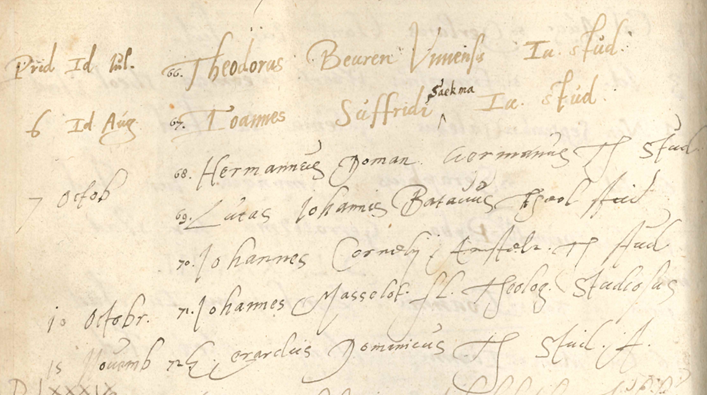 Prid Id Iul. 66. Theodorus Beuren Vnnensis Iu. stud.
Saekma
6 Id Aug 67. Ioannes Suffridi Iu. stud.
68. Hermannus Doman. Germanus Th stud.
7 Octob
69. Lucas Iohannis Batavus Theol stud
70. Iohannes Cornelij Amstelr. Th stud
10 Octobr. 71. Iohannes fl. Theolog. Studiosus
15 Novemb 72. Gerardus Dominicus Th Stud. f.
DLXXXIX